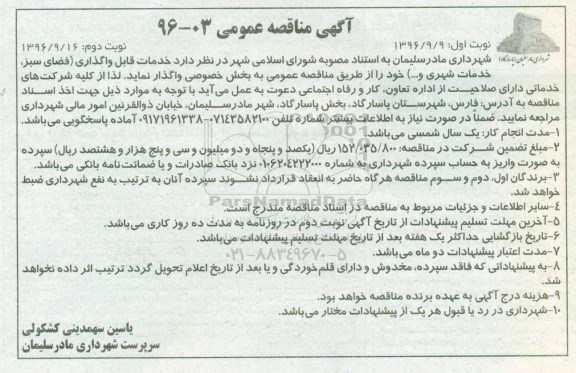 آگهی مناقصه عمومی ۰۳-۹۶
نوبت اول: ۱۳۹۶/۹/۹
نوبت دوم: ۱۳۹۶/۹/۱۶
شهرداری مادرسلیمان به استناد مصوبه شورای اسلامی شهر در نظر دارد خدمات قابل واگذاری (فضای سبز،
خدمات شهری و...) خود را از طریق مناقصه عمومی به بخش خصوصی واگذار نماید. لذا از کلیه شرکت‌های
خدماتی دارای صلاحیت از اداره تعاون، کار و رفاه اجتماعی دعوت به عمل می‌آید با توجه به موارد ذیل جهت اخذ اسناد
مناقصه به آدرس: فارس، شهرستان پاسارگاد، بخش پاسارگاد، شهر مادرسلیمان، خیابان ذوالقرنین امور مالی شهرداری
مراجعه نمایید. ضمناً در صورت نیاز به اطلاعات بیشتر شماره تلفن ۰۷۱۴۳۵۸۲۱۰۰-۰۹۱۷۱۹۶۱۳۳۸ آماده پاسخگویی می‌باشد.
۱-مدت انجام کار: یک سال شمسی می‌باشد.
۲-مبلغ تضمین شرکت در مناقصه: ۱۵۲/۰۳۵/۸۰۰ ریال (یکصد و پنجاه و دو میلیون و سی و پنج هزار و هشتصد ریال) سپرده
به صورت واریز به حساب سپرده شهرداری به شماره ۰۱۰۶۲۰۴۲۲۲۰۰۰ نزد بانک صادرات و یا ضمانت‌نامه بانکی می‌باشد.
۳-برندگان اول، دوم و سوم مناقصه هرگاه حاضر به انعقاد قرارداد نشوند سپرده آنان به ترتیب به نفع شهرداری ضبط
خواهد شد.
۴-سایر اطلاعات و جزئیات مربوط به مناقصه در اسناد مناقصه مندرج است.
۵-آخرین مهلت تسلیم پیشنهادات از تاریخ آگهی نوبت دوم در روزنامه به مدت ده روز کاری می‌باشد.
۶-تاریخ بازگشایی حداکثر یک هفته بعد از تاریخ مهلت تسلیم پیشنهادات می‌باشد.
۷-مدت اعتبار پیشنهادات دو ماه می‌باشد.
۸-به پیشنهاداتی که فاقد سپرده، مخدوش و دارای قلم‌خوردگی و یا بعد از تاریخ اعلام تحویل گردد ترتیب اثر داده نخواهد
شد.
۹-هزینه درج آگهی به عهده برنده مناقصه خواهد بود.
۱۰-شهرداری در رد یا قبول هر یک از پیشنهادات مختار می‌باشد.
یاسین سهمدینی کشکولی
سرپرست شهرداری مادرسلیمان
ParsNamadData
۰۲۱-۸۸۳۴۹۶۷۰-۵